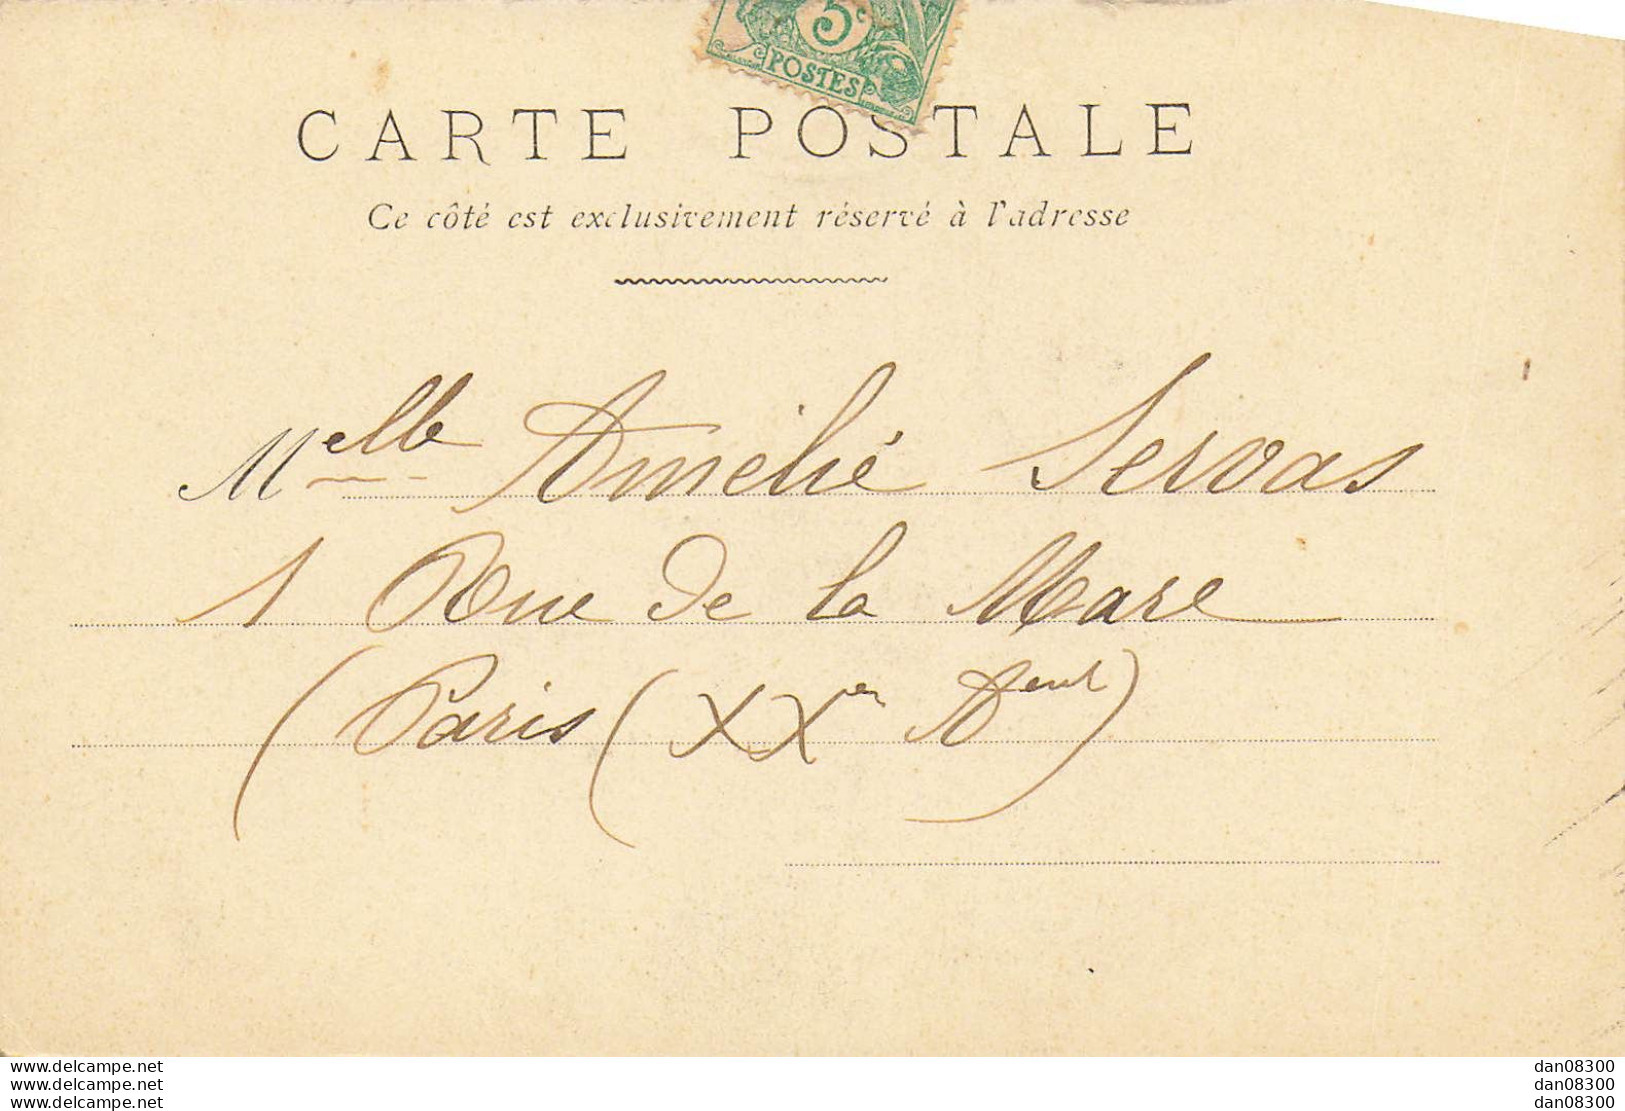 5c
POSTES
CARTE POSTALE
Ce côté est exclusivement réservé à l'adresse
Melle Amélie Servas
1 Rue de la Mare
(Paris (XXe Arent)
www.delcampe.net
www.delcampe.net
www.delcampe.net
dan08300
dan08300
dan08300